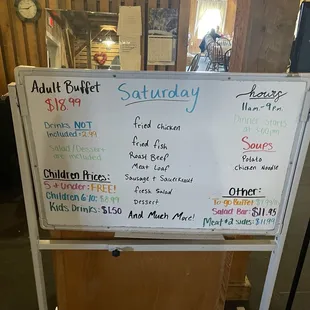 Adult Buffet
$18.99
Drinks NOT
Included +2.99
Salad/Dessert
are included
Children Prices:
5 + Under: FREE!
Children 6-10: $8.99
Kids Drinks: $1.50
Saturday
fried chicken
fried fish
Roast Beef
Meat Loaf
Sausage + Sauerkraut
fresh Salad
Dessert
And Much More!
hours
11am - 9pm
Dinner starts
at
Soups
Potato
Chicken Noodle
Other:
To go Buffet
Salad Bar: $11.95
Meat + 2 sides: $11.99